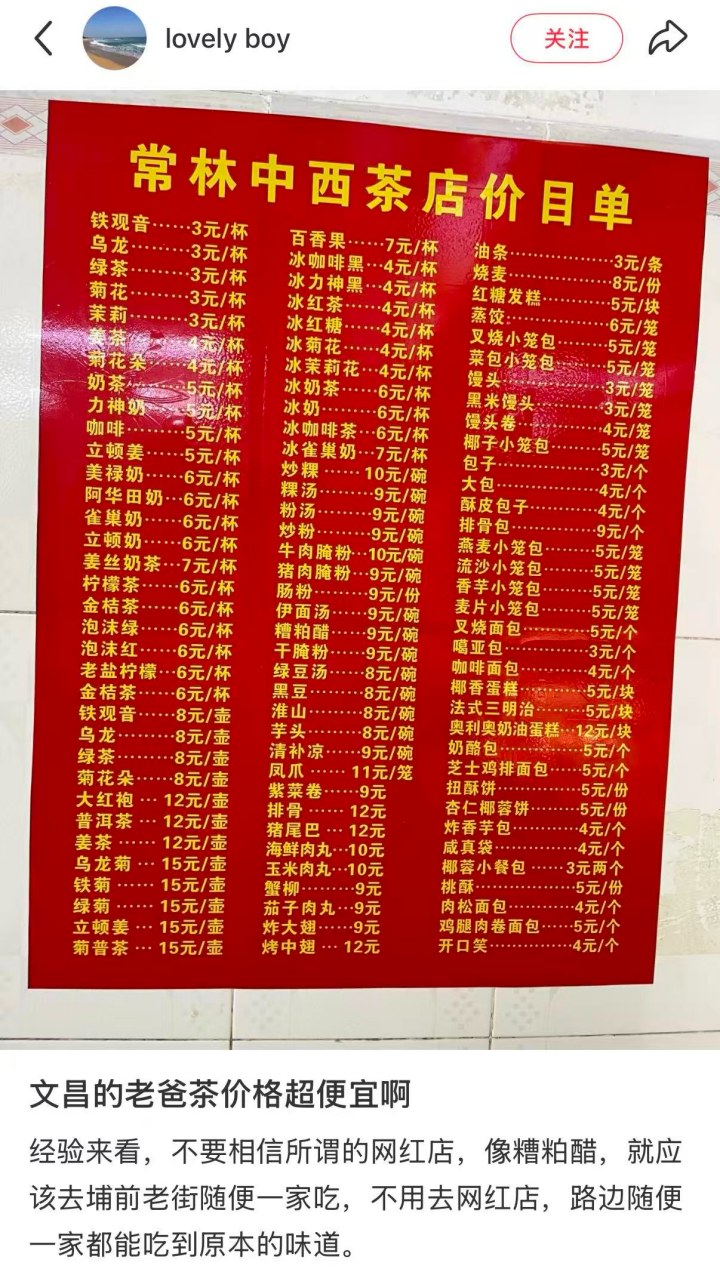 lovely boy
关注
常林中西茶店价目单
铁观音……3元/杯
乌龙………3元/杯
绿茶………3元/杯
菊花………3元/杯
茉莉………3元/杯
姜茶………4元/杯
菊花朵……4元/杯
奶茶………5元/杯
力神奶……5元/杯
咖啡………5元/杯
立顿姜……5元/杯
美禄奶……6元/杯
阿华田奶…6元/杯
雀巢奶……6元/杯
立顿奶……6元/杯
姜丝奶茶…7元/杯
柠檬茶……6元/杯
金桔茶……6元/杯
泡沫绿……6元/杯
泡沫红……6元/杯
老盐柠檬…6元/杯
金桔茶……6元/杯
铁观音……8元/壶
乌龙………8元/壶
绿茶………8元/壶
菊花朵……8元/壶
大红袍…12元/壶
普洱茶…12元/壶
姜茶……12元/壶
乌龙菊…15元/壶
铁菊……15元/壶
绿菊……15元/壶
立顿姜…15元/壶
菊普茶…15元/壶
百香果……7元/杯
冰咖啡黑…4元/杯
冰力神黑…4元/杯
冰红茶……4元/杯
冰红糖……4元/杯
冰菊花……4元/杯
冰茉莉花…4元/杯
冰奶茶……6元/杯
冰奶………6元/杯
冰咖啡茶…6元/杯
冰雀巢奶…7元/杯
炒粿……10元/碗
粿汤………9元/碗
粉汤………9元/碗
炒粉………9元/碗
牛肉腌粉…10元/碗
猪肉腌粉…9元/碗
肠粉………9元/份
伊面汤……9元/碗
糟粕醋……9元/碗
干腌粉……9元/碗
绿豆汤……8元/碗
黑豆………8元/碗
淮山………8元/碗
芋头………8元/碗
清补凉……9元/碗
凤爪……11元/笼
紫菜卷……9元
排骨……12元
猪尾巴…12元
海鲜肉丸…10元
玉米肉丸…10元
蟹柳………9元
茄子肉丸…9元
炸大翅……9元
烤中翅…12元
油条………………3元/条
烧麦………………8元/份
红糖发糕…………5元/块
蒸饺………………6元/笼
叉烧小笼包………5元/笼
菜包小笼包………5元/笼
馒头………………3元/笼
黑米馒头…………3元/笼
馒头卷……………4元/笼
椰子小笼包………5元/笼
包子………………3元/个
大包………………4元/个
酥皮包子…………4元/个
排骨包……………9元/个
燕麦小笼包………5元/笼
流沙小笼包………5元/笼
香芋小笼包………5元/笼
麦片小笼包………5元/笼
叉烧面包…………5元/个
噶亚包……………3元/个
咖啡面包…………4元/个
椰香蛋糕…………5元/块
法式三明治………5元/块
奥利奥奶油蛋糕…12元/块
奶酪包……………5元/个
芝士鸡排面包……5元/个
扭酥饼……………5元/份
杏仁椰蓉饼………5元/份
炸香芋包…………4元/个
咸真袋……………4元/个
椰蓉小餐包……3元两个
桃酥………………5元/份
肉松面包…………4元/个
鸡腿肉卷面包……5元/个
开口笑……………4元/个
文昌的老爸茶价格超便宜啊
经验来看，不要相信所谓的网红店，像糟粕醋，就应
该去埔前老街随便一家吃，不用去网红店，路边随便
一家都能吃到原本的味道。